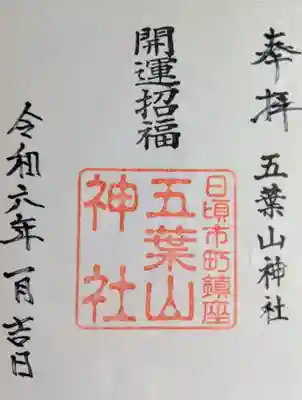 奉拝 五葉山神社
開運招福
日頃市町鎮座
五葉山
神社
令和六年一月吉日